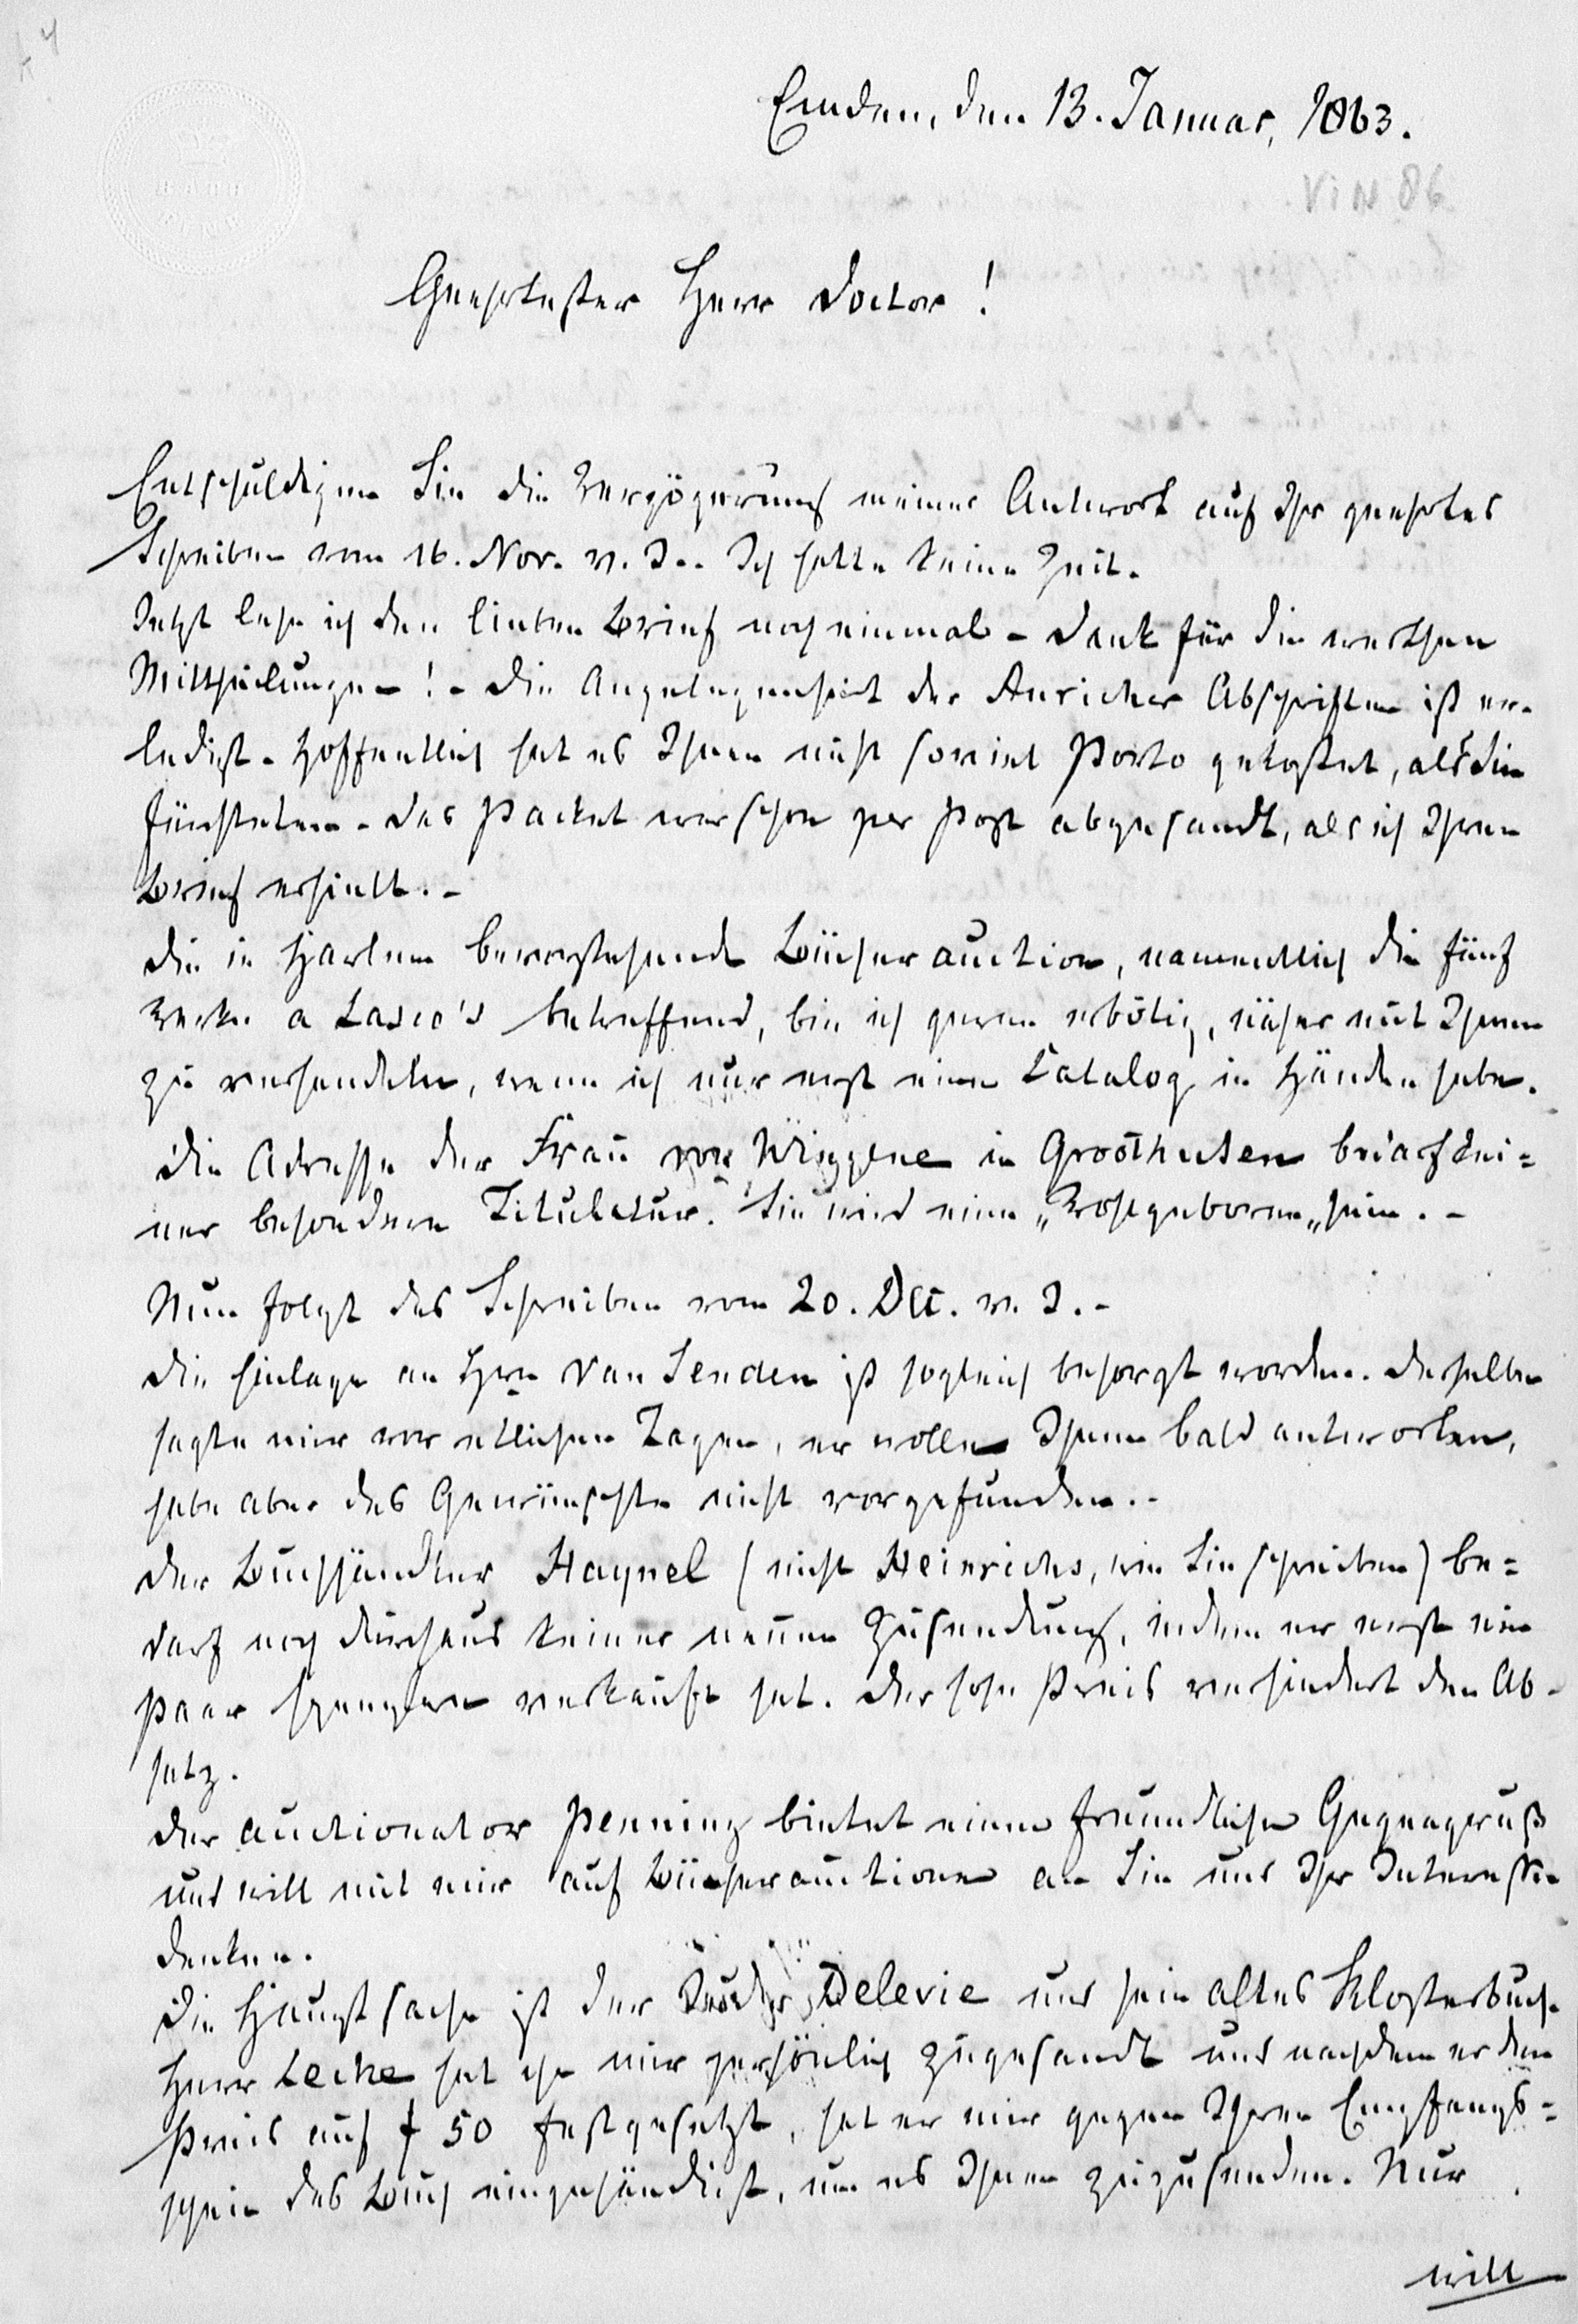 Emden, den 13. Januar, 1863.
VIN 86
Geehrtester Herr Doctor!
Entschuldigen Sie die Verzögerung meiner Antwort auf Ihr geehrtes
Schreiben vom 16. Nov. v. J.. Ich hatte keine Zeit.
Jetzt lese ich den lieben Brief noch einmal - Dank für die werthen
Mittheilungen! - Die Angelegenheit der Auricher Abschriften ist er-
ledigt. Hoffentlich hat es Ihnen nicht soviel Porto gekostet, als Sie
fürchteten. Das Packet war schon per Post abgesandt, als ich Ihren
Brief erhielt. -
Die in Harlem bevorstehende Bücherauction, namentlich die fünf
Werke a Lasco's betreffend, bin ich gerne erbötig, näher mit Ihnen
zu verhandeln, wenn ich nur erst einen Catalog in Händen habe.
Die Adresse der Frau von Wingene in Groothusen bedarf kei=
ner besondern Titulatur. Sie wird eine „Wohlgeboren„ sein. -
Nun folgt das Schreiben vom 20. Dec. v. J. -
Die Einlage an Hrn Van Senden ist sogleich besorgt worden. Derselbe
sagte mir vor etlichen Tagen, er wolle Ihnen bald antworten,
habe aber das Gewünschte nicht vorgefunden. -
Der Buchhändler Haynel (nicht Heinrichs, wie Sie schreiben) be=
darf noch durchaus keiner neuen Zusendung, indem er erst ein
Paar Exemplare verkauft hat. Der hohe Preis verhindert den Ab-
satz.
Der Auctionator Penning bietet einen freundlichen Gegengruß
und will mit mir auf Bücherauctionen an Sie und Ihr Interesse
denken.
Die Hauptsache ist der Delevie und sein altes Klosterbuch.
Herr Leche hat ihn mir persönlich zugesandt und nachdem er den
Preis auf f 50 festgesetzt, hat er mir gegen Ihren Empfangs=
schein das Buch eingehändigt, um es Ihnen zuzusenden. Nur
will